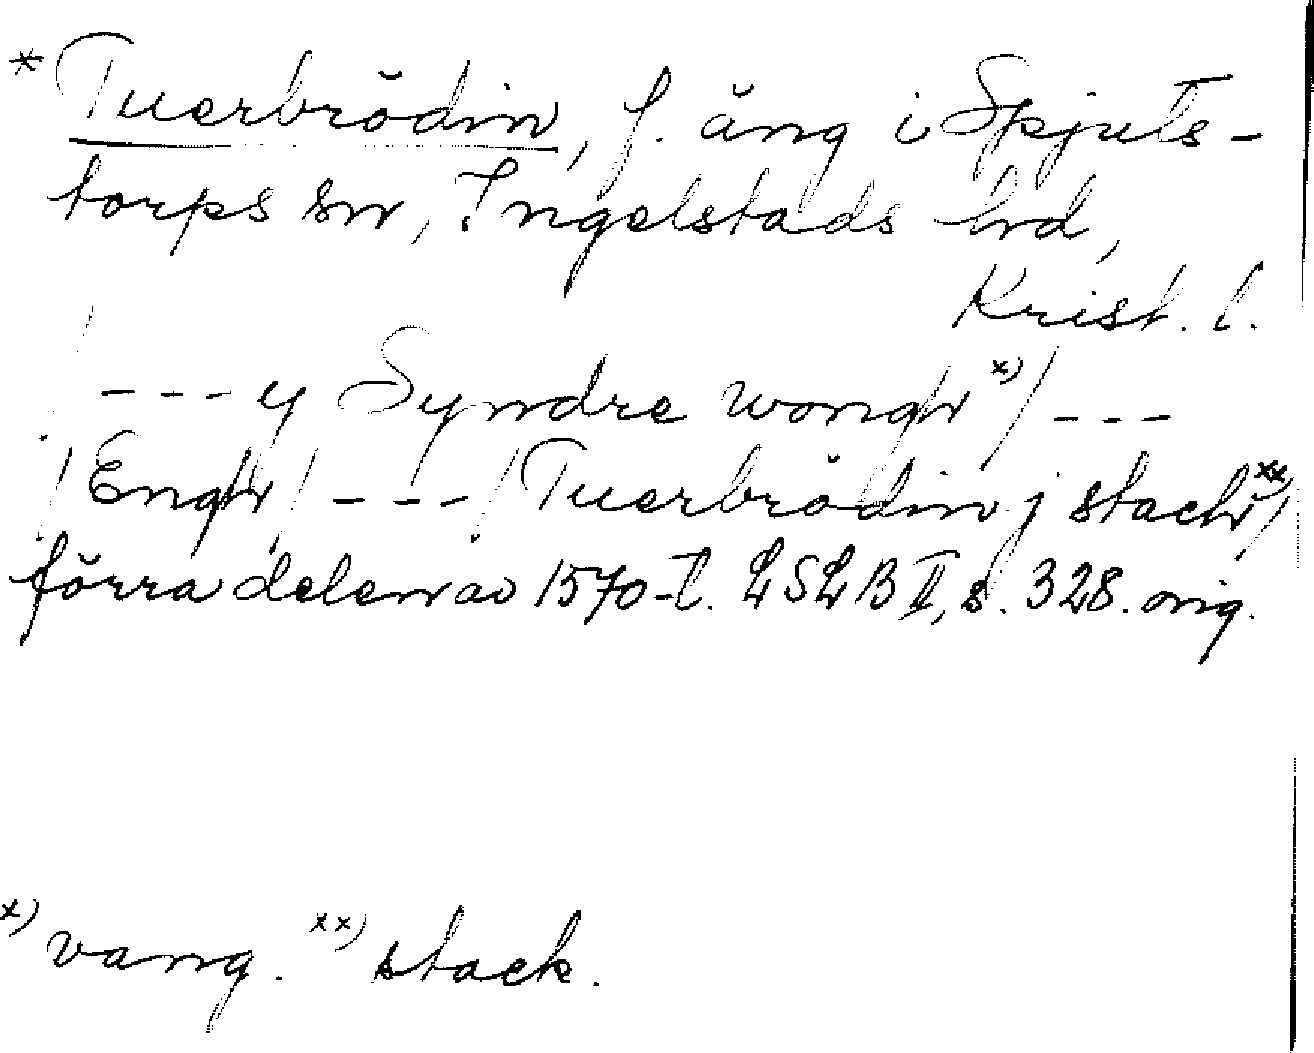 * Tuerbrödin, f. äng i Spjuts-
torps sn, Ingelstads hrd,
Krist. l.
--- y Syndre wongh x) / ---
/ Engh / --- / Tuerbrödin j stach xx) /
förra delen av 1570-t. LSLB II, s. 328. orig.
x) vang. xx) stack.